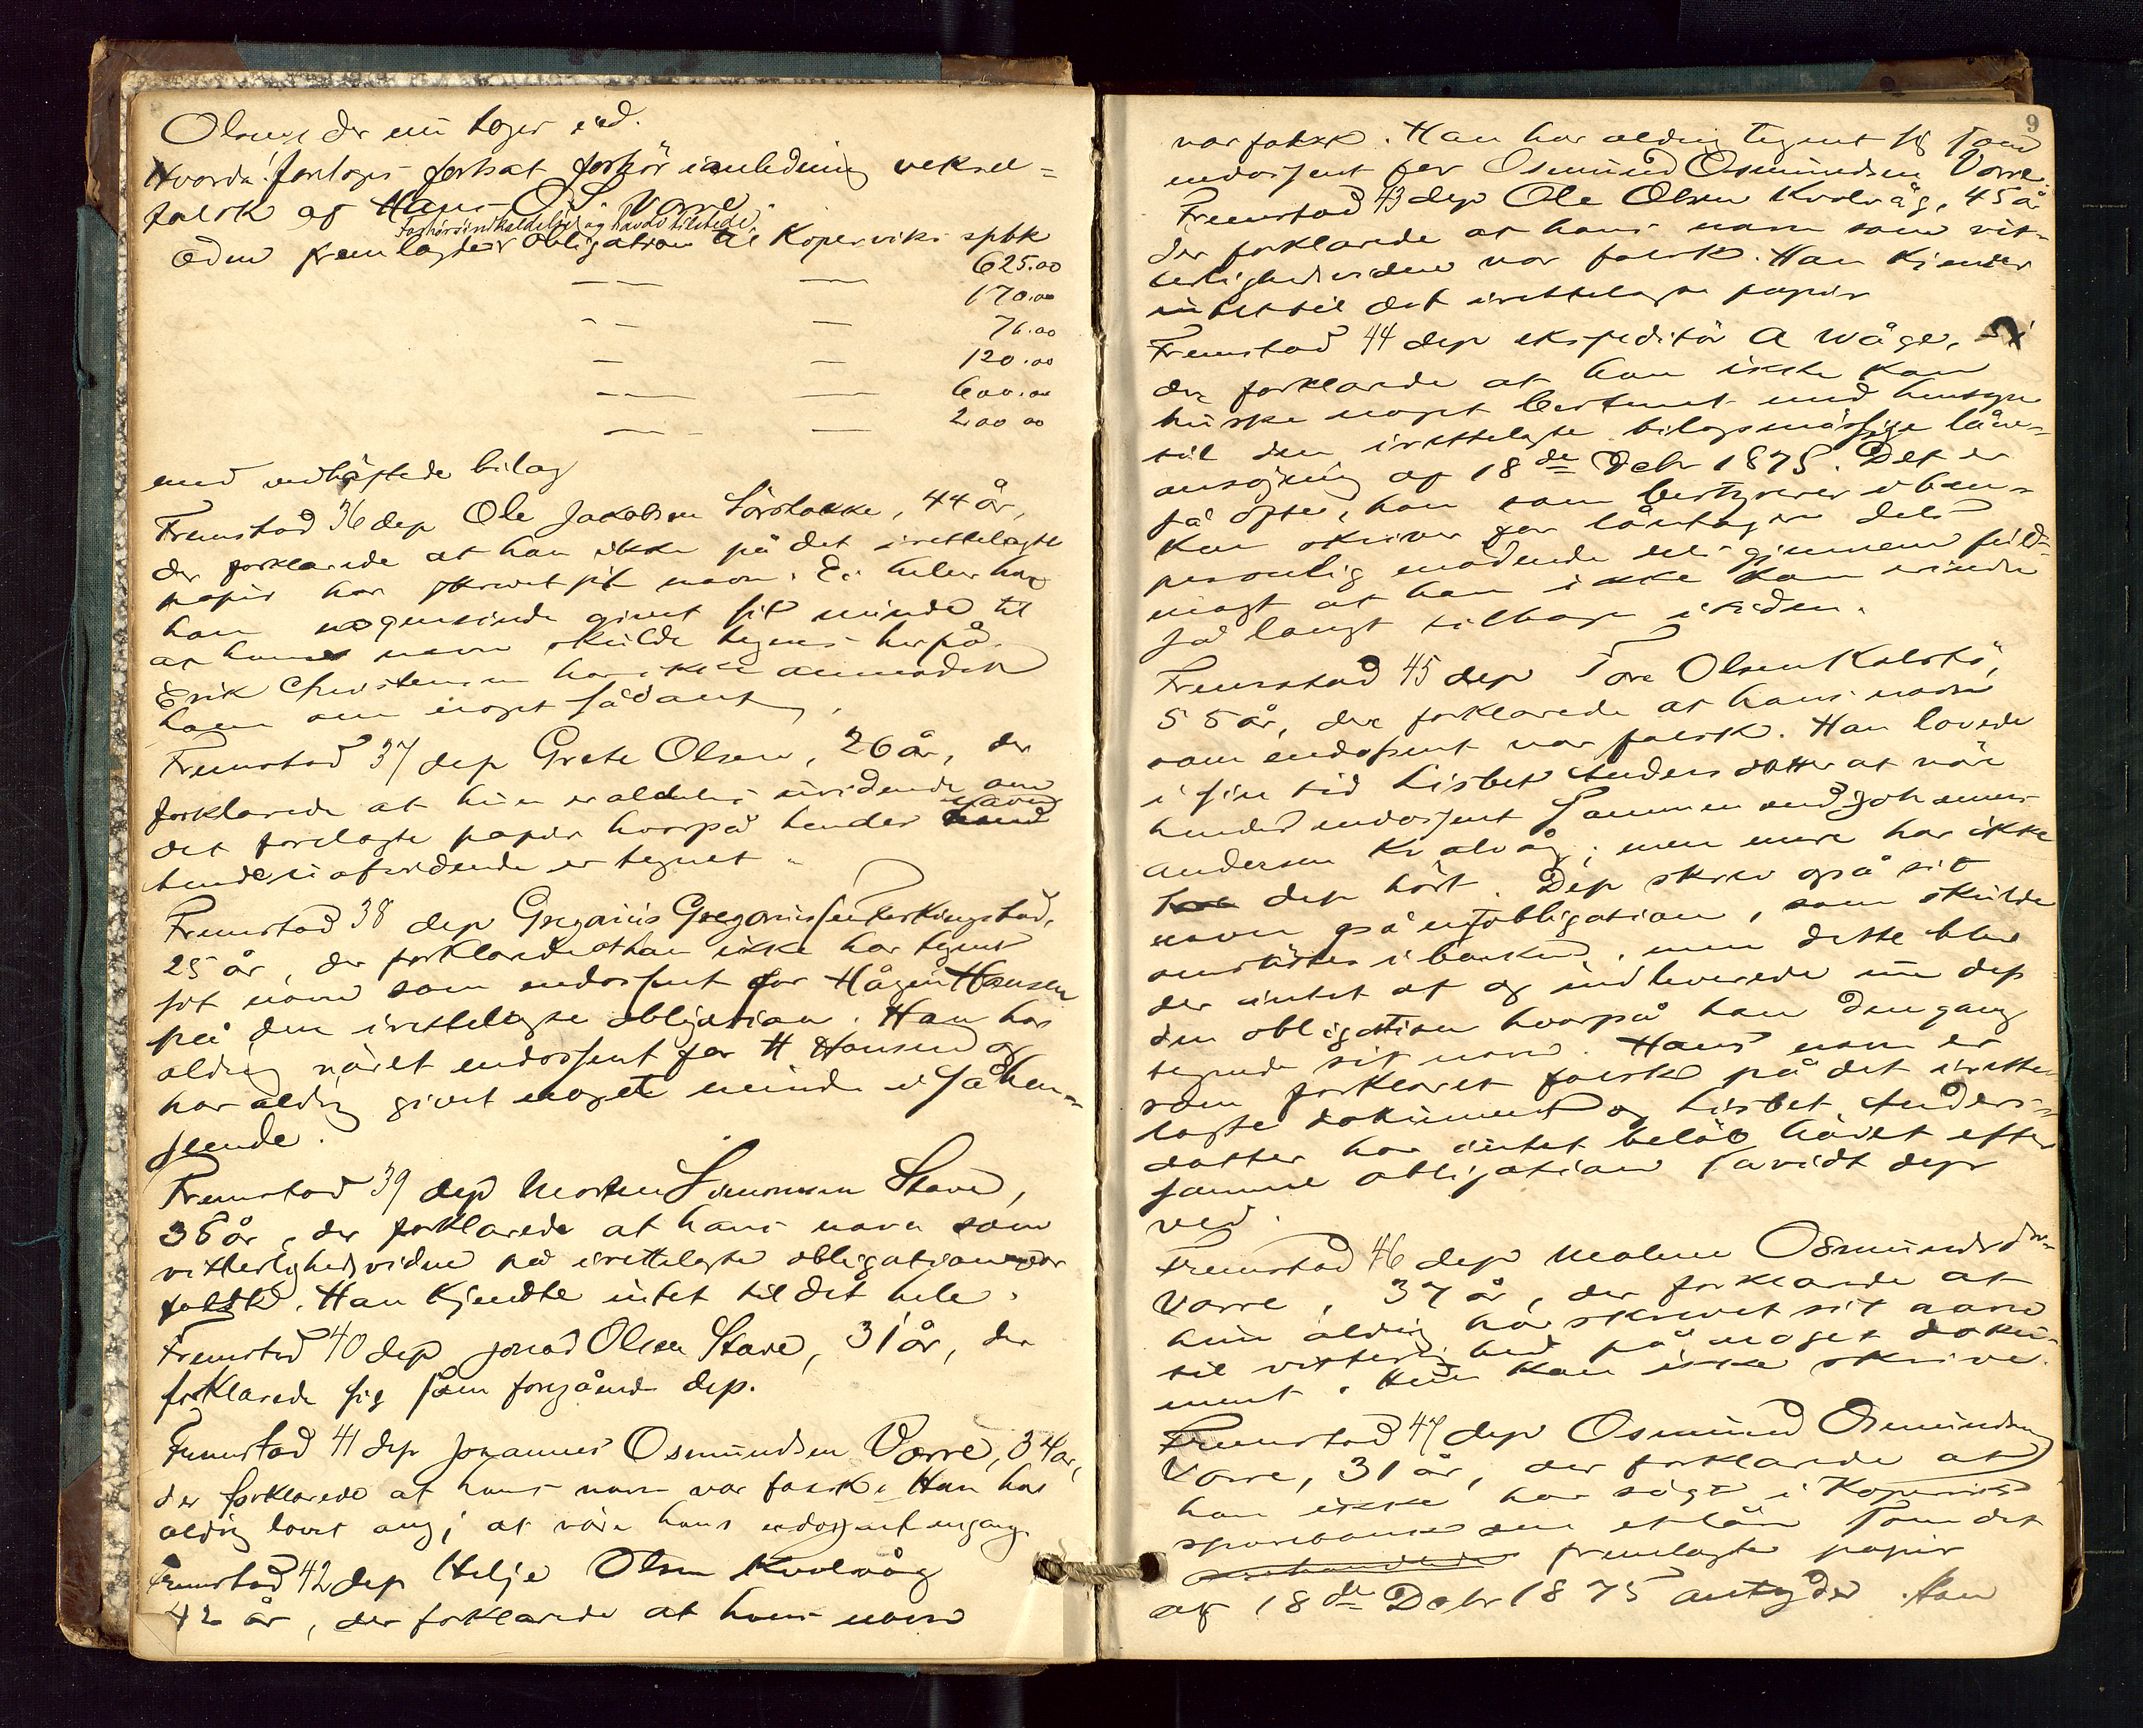 Olsen der nu tages ed.
Hvorda! foretoges fortsat forhör i anledning veksel=
falsk af Hans O. S. Vorre
Forhörsindkaldelse og havde tilstede.
Edm fremlagdes obligation til Koperviks spbk
— — 625.00
— — 170.00
— — 76.00
— — 120.00
— — 600.00
— — 200 00
med vedhäftede bilag
Fremstod 36 dep Ole Jakobsen Sörstokke, 44 år,
der forklarede at han ikke på det irettelagte
papir har skrevet sit navn. Ei heller har
han nogensinde givet sit minde til
at hans navn skulde tegnes herpå.
Erik Christensen har ikke anmodet
ham om noget sådant,
Fremstod 37 dep Grete Olsen, 26 år, der
forklarede at hun er aldeles uvidende om
det forelagte papir hvorpå hendes navn
hendes uafvidende er tegnet.
Fremstod 38 dep Gregorius Gregoriussen Ferkingstad,
25 år, der forklarede at han ikke har tegnet
sit navn som endossent for Hågen Hansen
på den irettelagte obligation. Han har
aldrig väret endossent for H Hansen og
har aldrig givet noget minde i så hen=
seende.
Fremstod 39 dep Morten Simonsen Stave,
36 år, der forklarede at hans navn som
vitterlighedsvidne på irettelagte obligation var
falsk. Han kjendte intet til det hele.
Fremstod 40 dep Jonas Olsen Stave, 31 år, der
forklarede sig som foregående dep.
Fremstod 41 dep Johannes Osmundsen Vorre, 34 år,
der forklarede at hans navn var falsk. Han har
aldrig lovet at väre hans endossent engang.
Fremstod 42 dep Helje Olsen Kvalvåg
42 år, der forklarede at hans navn
9
var falsk. Han har aldrig tegnet sig som
endossent for Osmund Osmundsen Vorre.
Fremstod 43 dep Ole Olsen Kvalvåg, 45 år
der forklarede at hans navn som vit=
terlighedsvidne var falsk. Han kjender
intet til det irettelagte papir
Fremstod 44 dep ekspeditör A Wåge,
der forklarede at han ikke kan
huske noget bestemt med hensyn
til den irettelagte bilagsmässige låne=
ansøgning af 18de Debr 1875. Det er
så ofte, han som bestyrer i ban=
ken skriver for låntagere dels
personlig mödende dels gjennem fuld=
magt at han ikke kan erindre
så langt tilbage i tiden.
Fremstod 45 dep Tore Olsen Kalstö,
55 år, der forklarede at hans navn
som endossent var falsk. Han lovede
i sin tid Lisbet Andersdatter at väre
hendes endossent sammen med Johannes
Andersen Kvalvåg; men mere har ikke
dep hört. Dep skrev også sit
navn på en obligation, som skulde
omsättes i banken, men dette blev
der intet af og indleverede nu dep
den obligation hvorpå han dengang
tegnede sit navn. Hans navn er
som forklaret falsk på det irette=
lagte dokument og Lisbet Anders=
datter har intet belöb hävet efter
samme obligation såvidt dep
ved.
Fremstod 46 dep Malene Osmundsdtr
Vorre, 37 år, der forklarede at
hun aldrig har skrevet sit navn
til vitterlighed på noget doku=
ment. Hun kan ikke skrive.
Fremstod 47 dep Osmund Osmundsen
Vorre, 31 år, der forklarede at
han ikke har sögt i Koperviks
sparebank om et lån som det
fremlagte papir
af 18de Debr 1875 antyder. Han